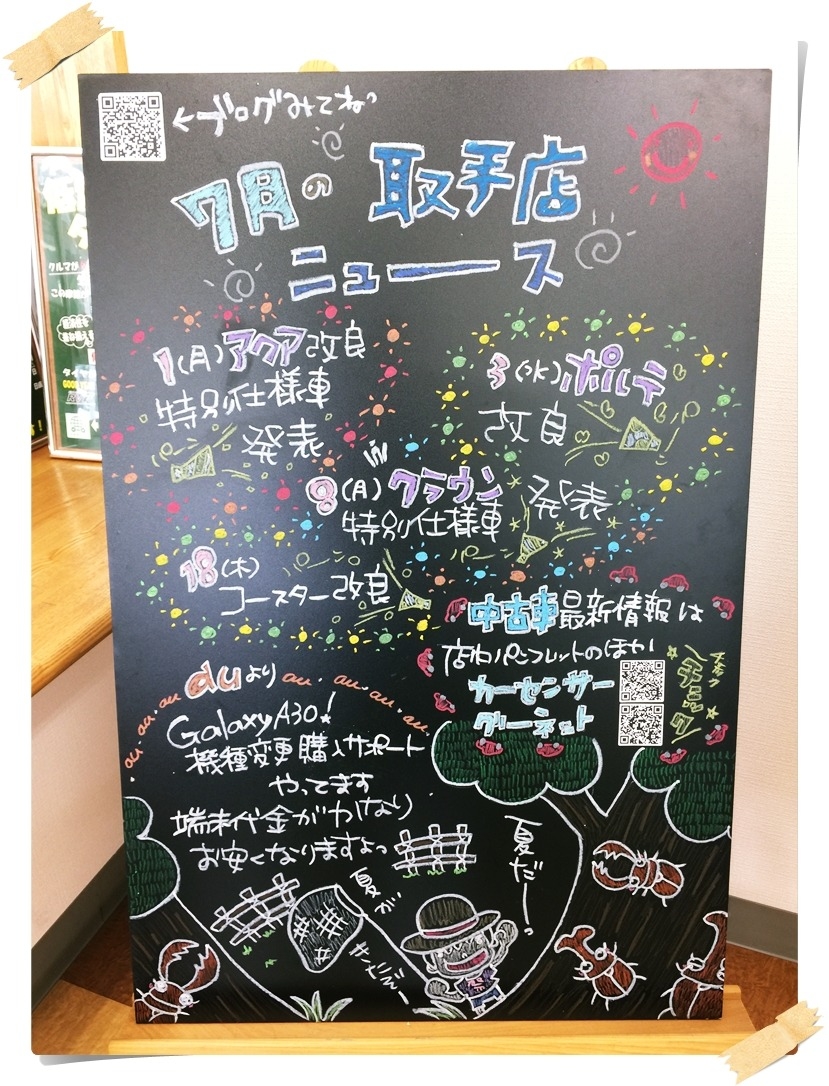 ←ブログみてねっ
7月の 取手店
ニュース
1(月)アクア改良
特別仕様車
発表
3(水)ポルテ
改良
8(月)クラウン 発表
特別仕様車
18(木)
コースター改良
中古車最新情報は
店内パンフレットのほか
カーセンサー
グーネット
チェック
auより au.au.au.au.au.
au.au.au
GalaxyA30!
機種変更購入サポート
やってます
端末代金がかなり
お安くなりますよっ
夏だーっ
夏が
クルマが